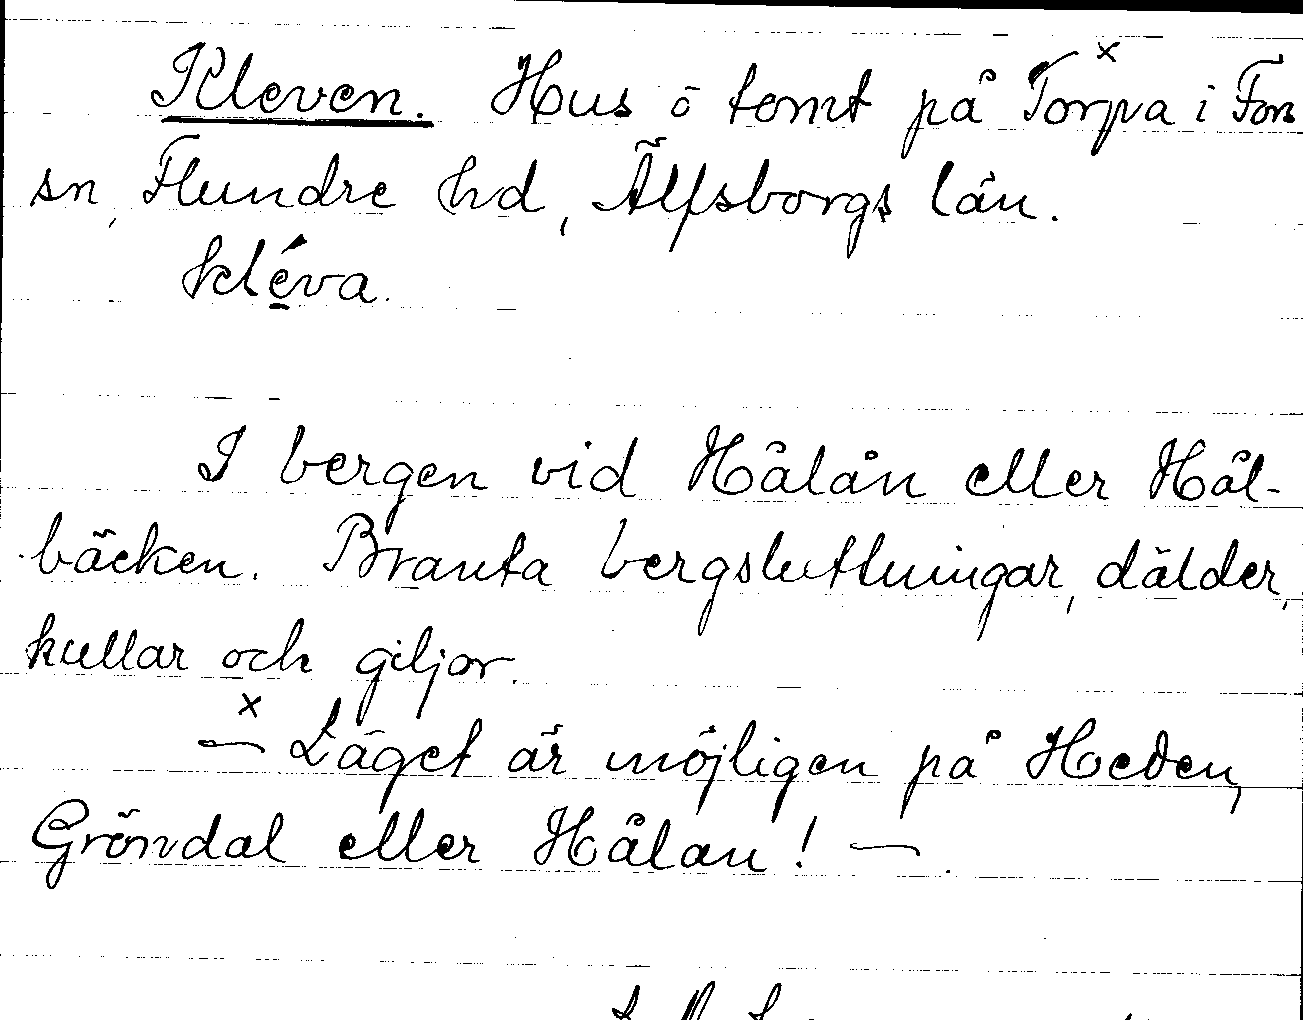 Kleven. Hus o tomt på Torpa x i Fors
sn, Flundre hd, Älfsborgs län.
kléva.
I bergen vid Hålån eller Hål-
bäcken. Branta bergsluttningar, dälder,
kullar och giljor.
x — Läget är möjligen på Heden,
Gröndal eller Hålan! —